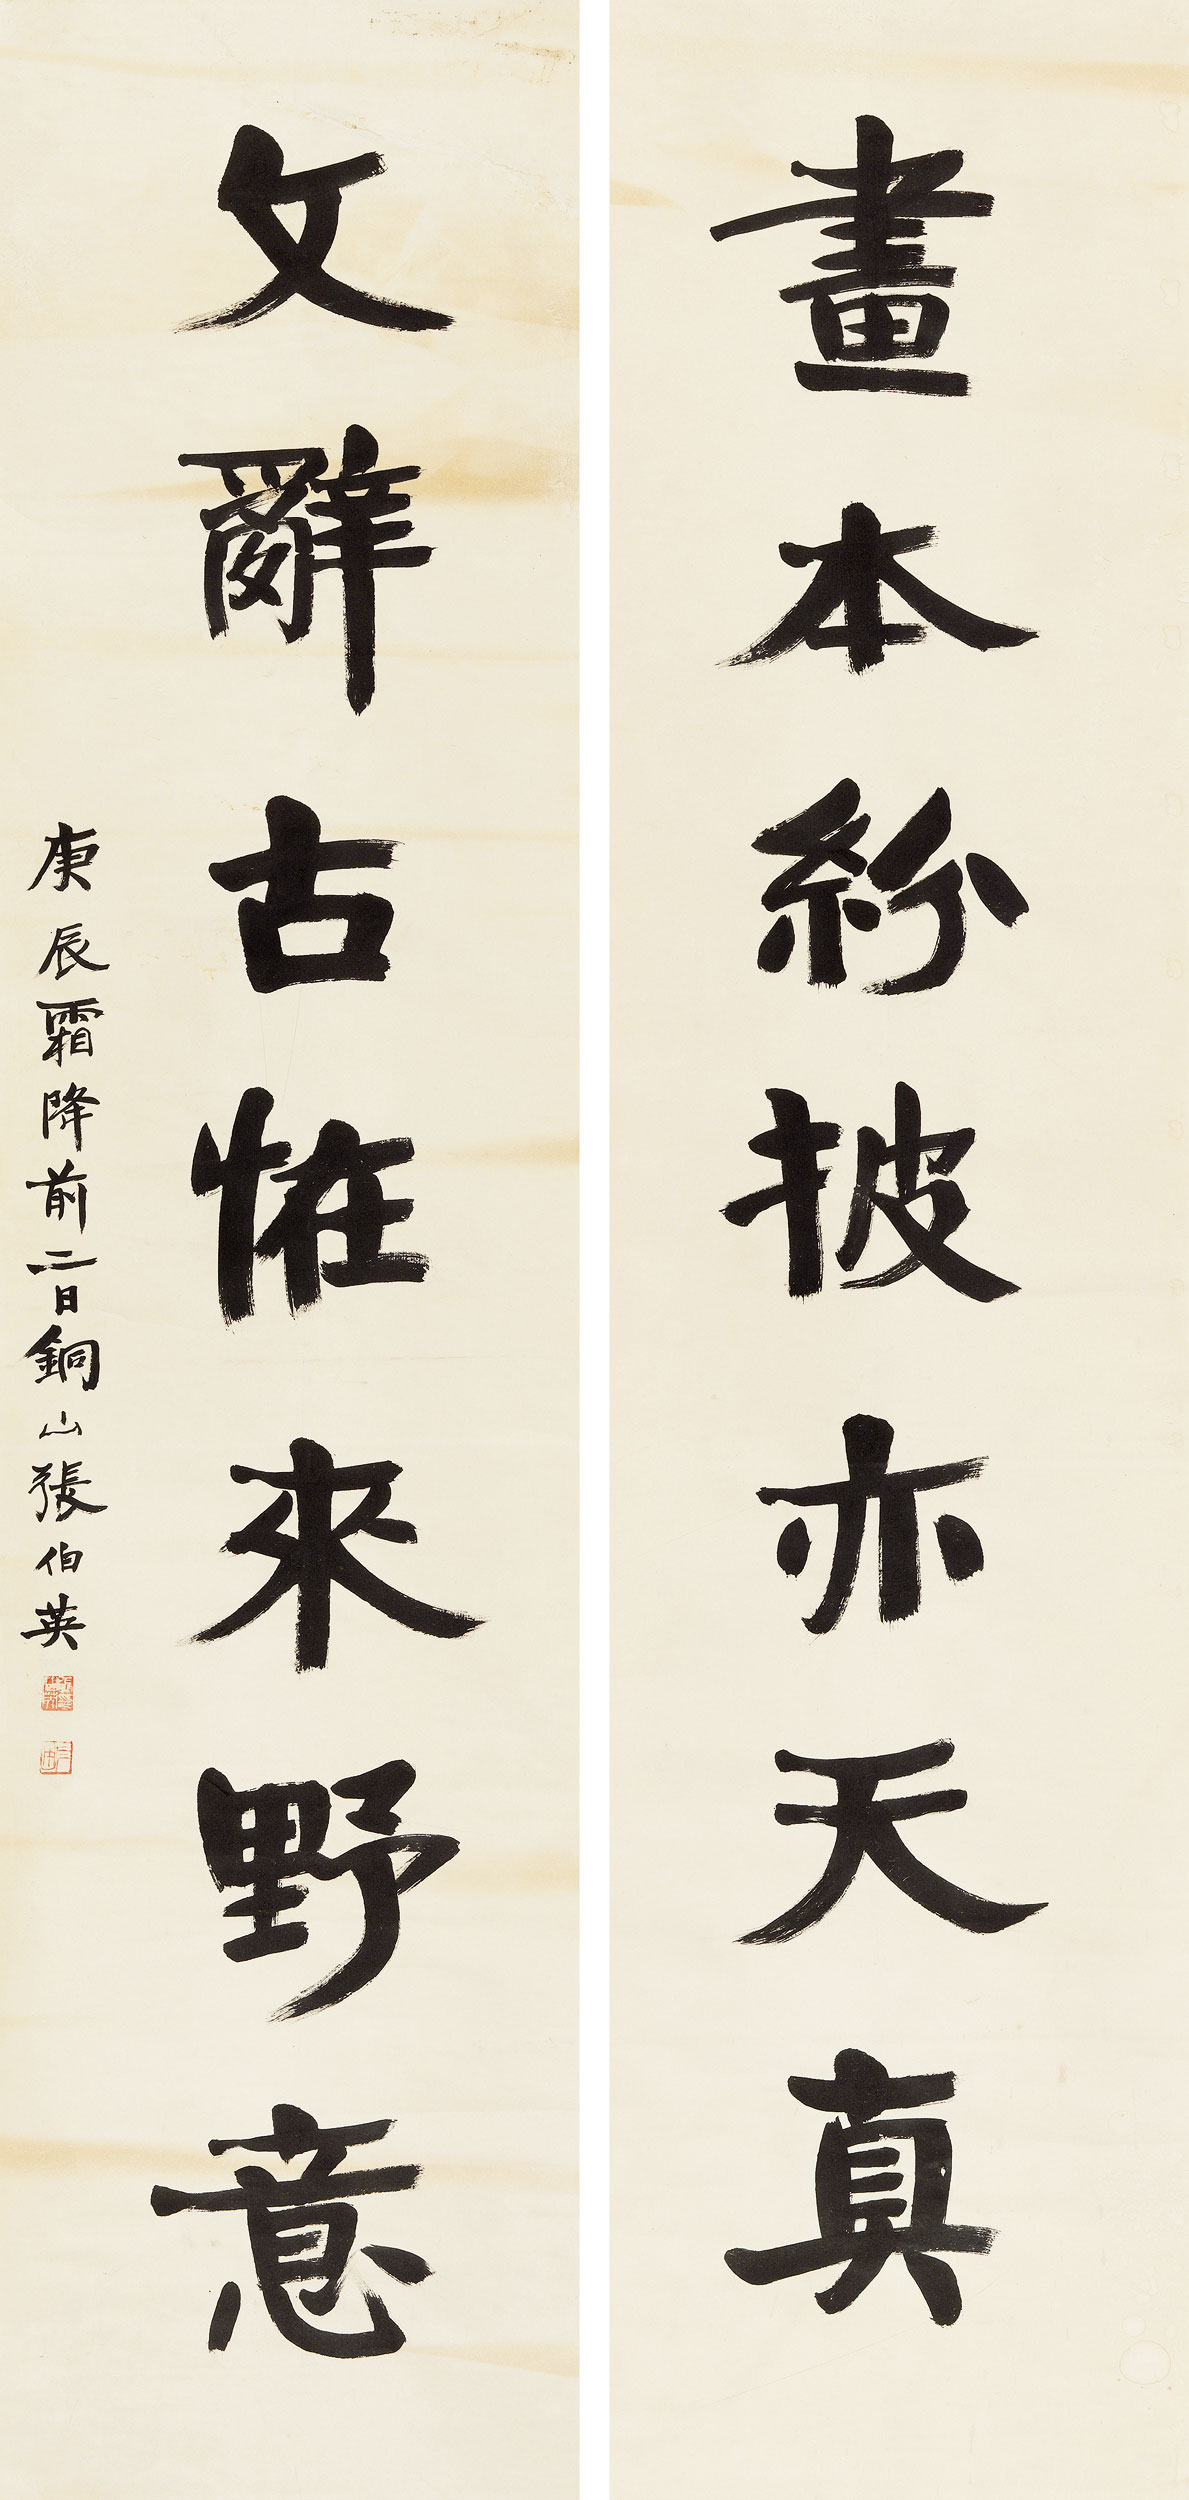 畫本紛披亦天真
文辭古惟來野意
庚辰霜降前二日銅山張伯英